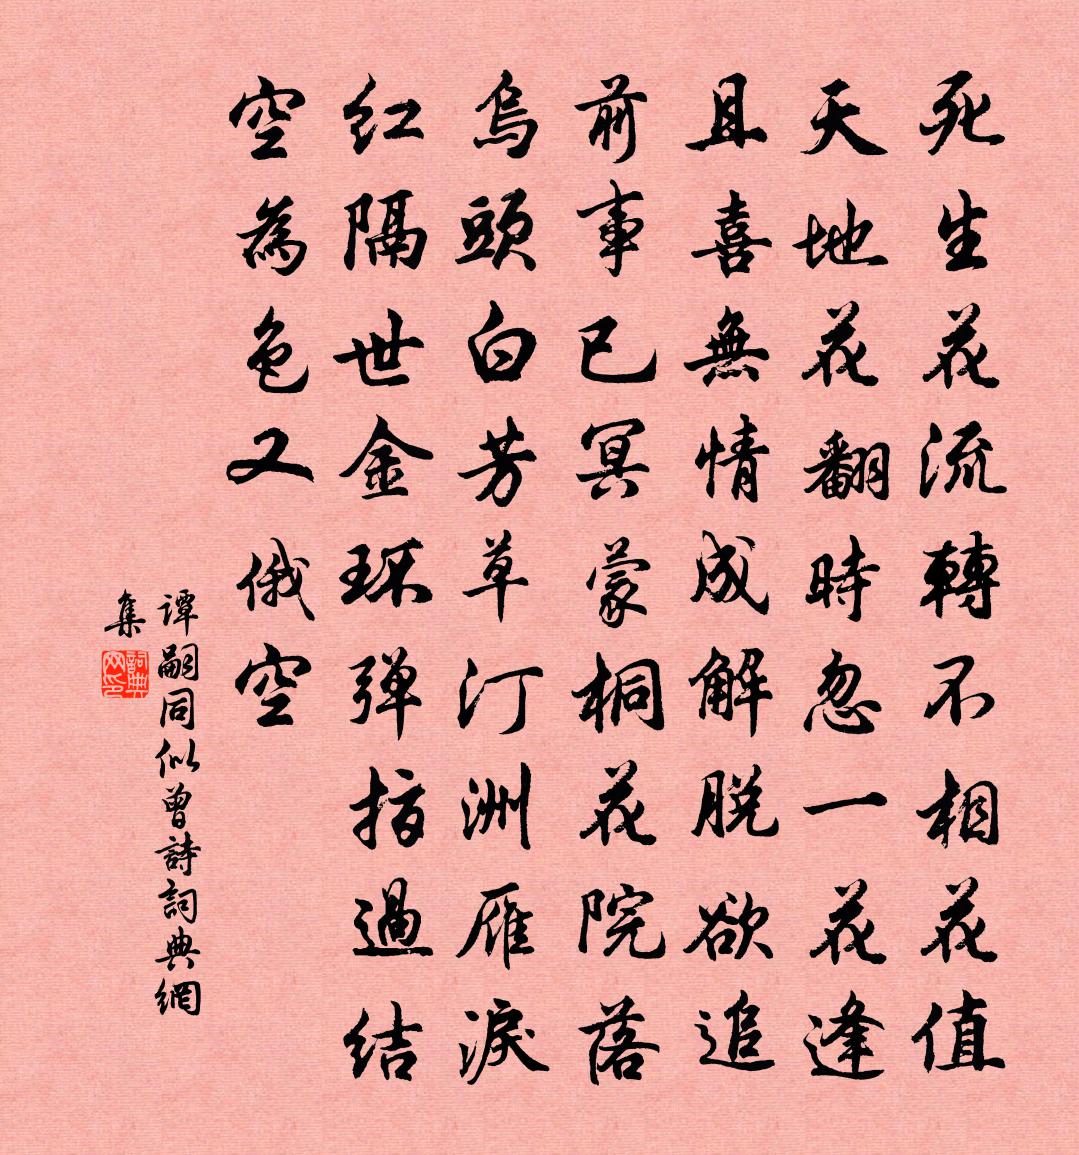 死生花流轉不相花值
天地花翻時忽一花逢
且喜無情成解脫欲追
前事已冥蒙桐花院落
烏頭白芳草汀洲雁淚
红隔世金环弹指過结
空為色又俄空
谭嗣同似曾詩詞典網
集
詞典网印